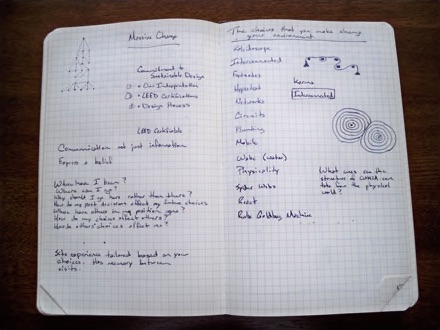 Massive Change
Commitment to
Sustainable Design
① + Our Interpretation
② + LEED Certifications
③ + Design Process
LEED Certifiable
Communication not just information
Express a belief
Where have I been?
Where can I go?
Why should I go here rather than there?
How do my past decisions affect my future choices
Where have others in my position gone?
How do my choices affect others?
How do others' choices affect me?
Site experience tailored based on your
choices. Has memory between
visits.
The choices that you make change
your environment
Kaleidoscope
Interconnected
Footnotes
Hypertext
Networks
Circuits
Plumbing
Mobile
Wake (water)
Physicality
Spider Webs
React
Rube Goldberg Machine
Karma
Interconnected
What ways can the
structure of
take from the physical
world?